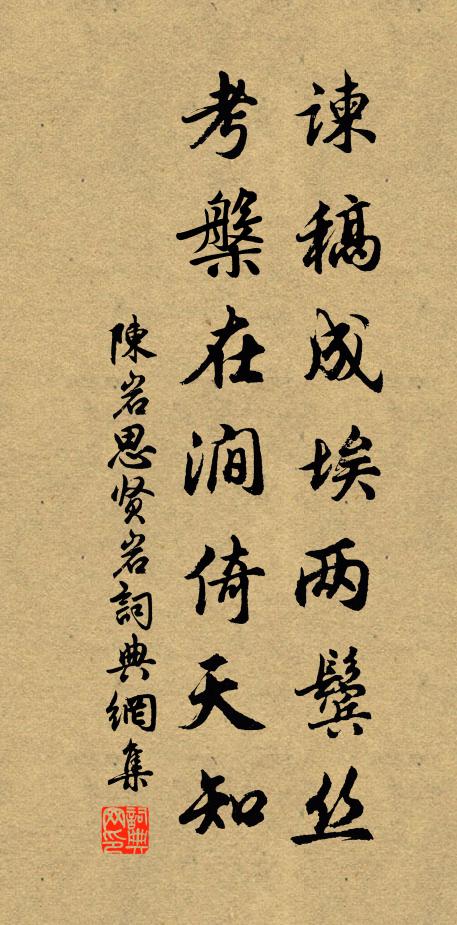 谏稿成埃两鬓丝
考槃在涧倚天知
陳岩思贤岩詞典網集
詞典网印